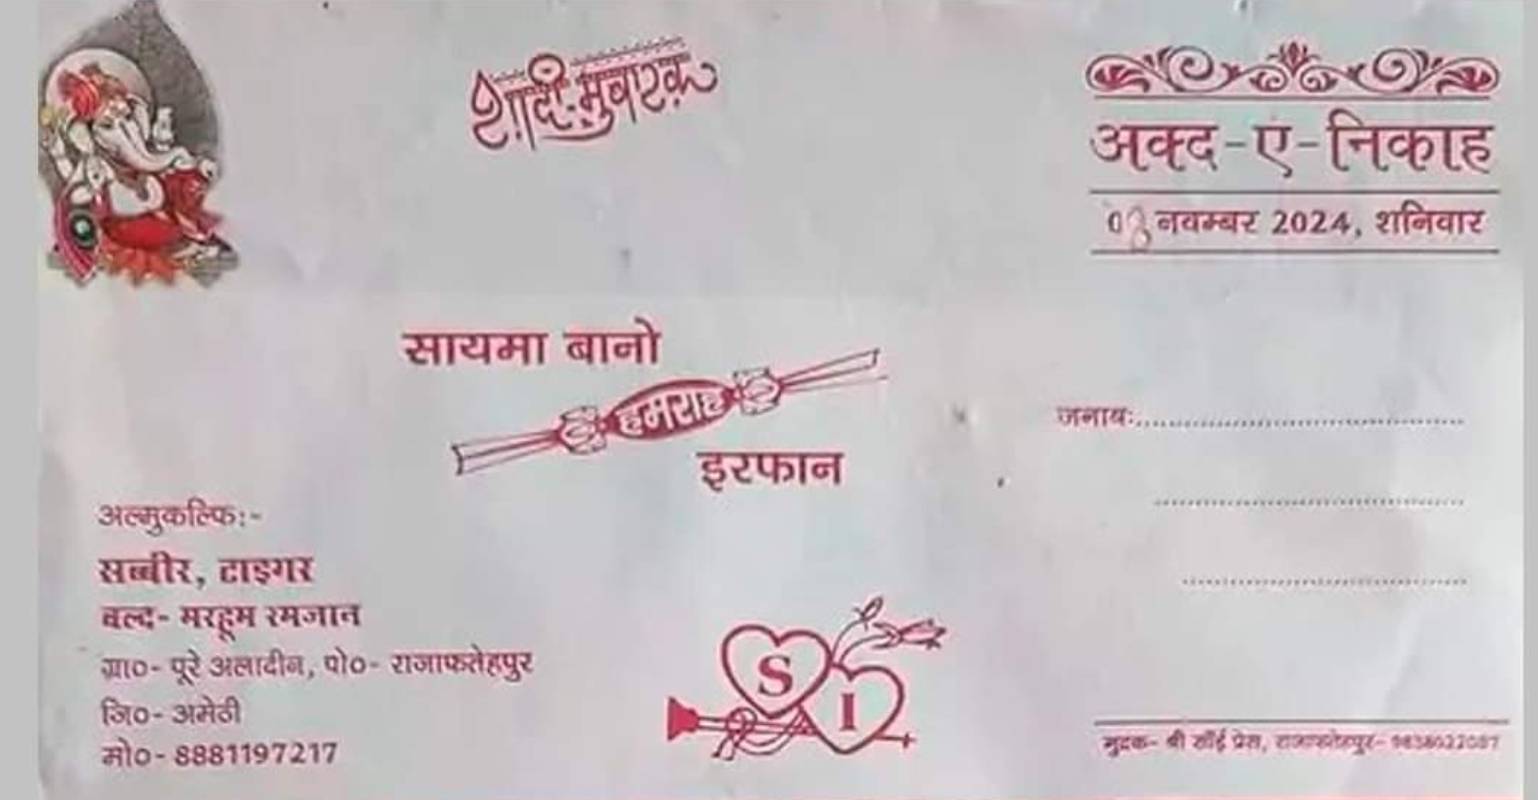 शादी मुबारक
अक्द-ए-निकाह
08 नवम्बर 2024, शनिवार
सायमा बानो
हमराह
इरफान
जनाबः
अल्मुकल्फिः-
सब्बीर, टाइगर
वल्द- मरहूम रमजान
ग्रा०- पूरे अलादीन, पो०- राजाफतेहपुर
जि०- अमेठी
मो०- 8881197217
S I
मुद्रक- श्री साँई प्रेस, राजाफतेहपुर-